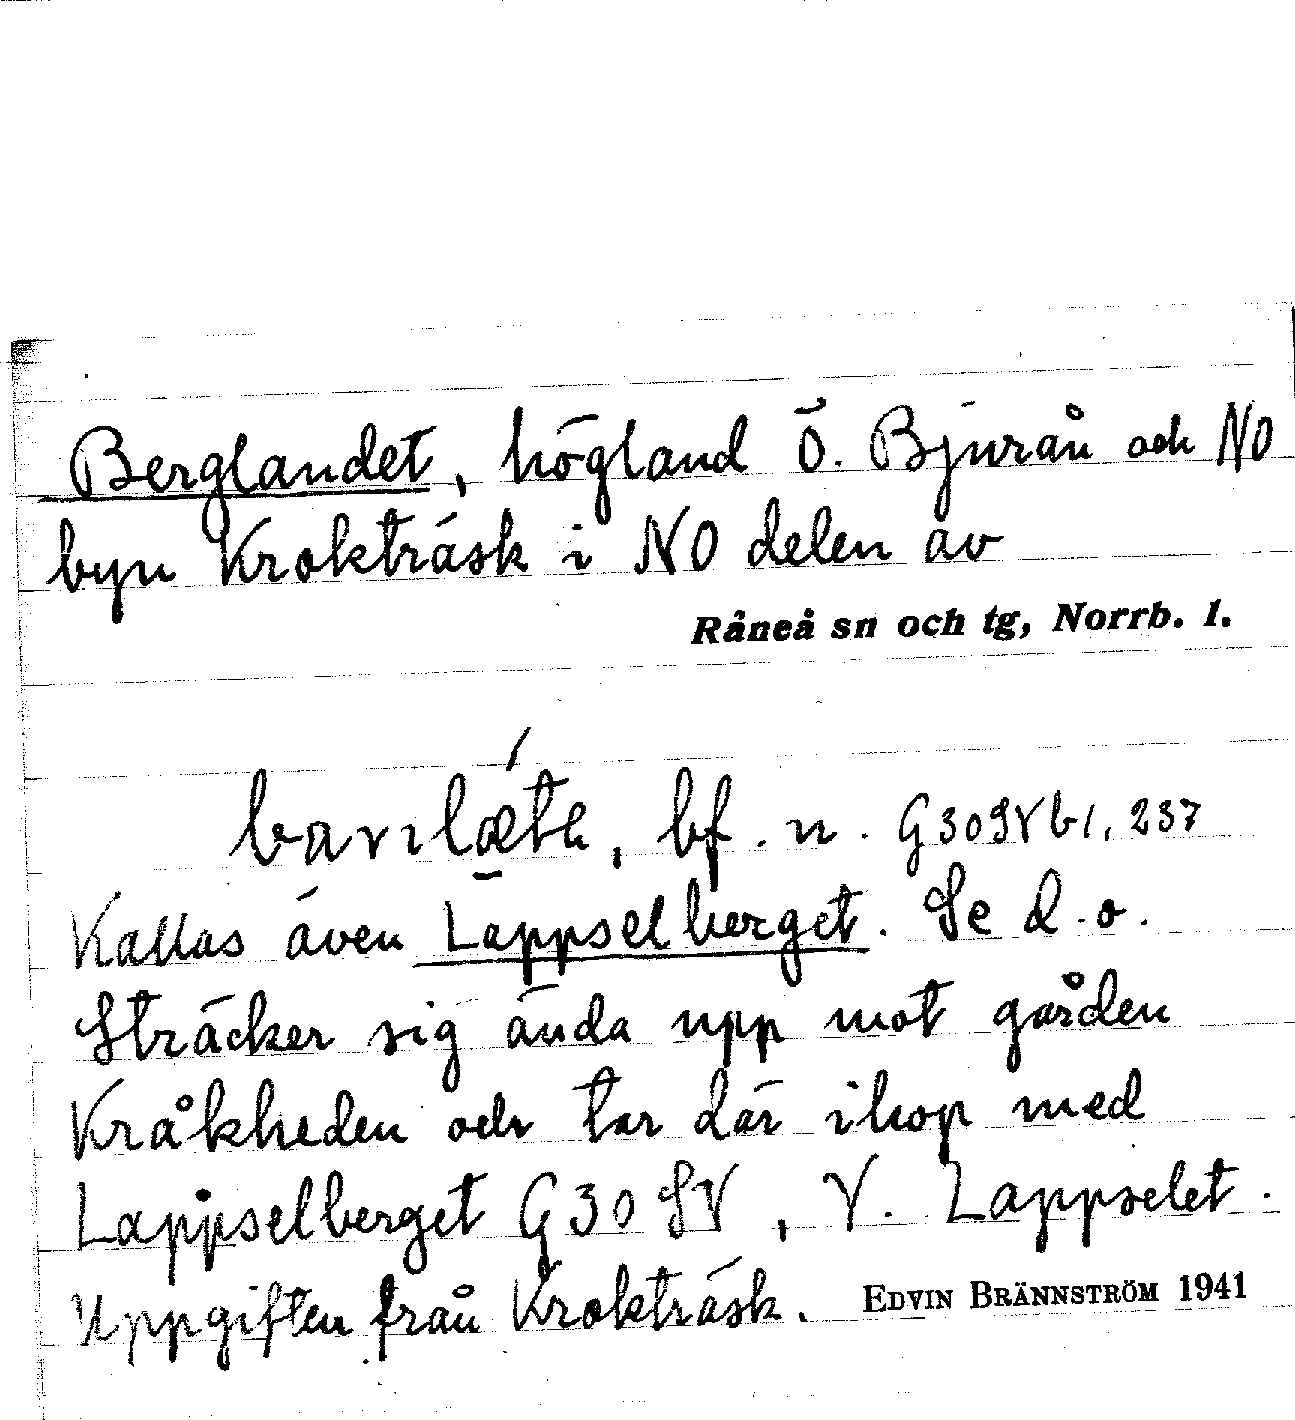 Berglandet, högland Ö. Bjurån och NO
byn Krokträsk i NO delen av
Råneå sn och tg, Norrb. l.
bf. n. G30SVb1, 237
Kallas även Lappselberget. Se d.o.
Sträcker sig ända upp mot gården
Kråkheden och tar där ihop med
Lappselberget G30SV, V. Lappselet.
Uppgiften från Krokträsk. EDVIN BRÄNNSTRÖM 1941